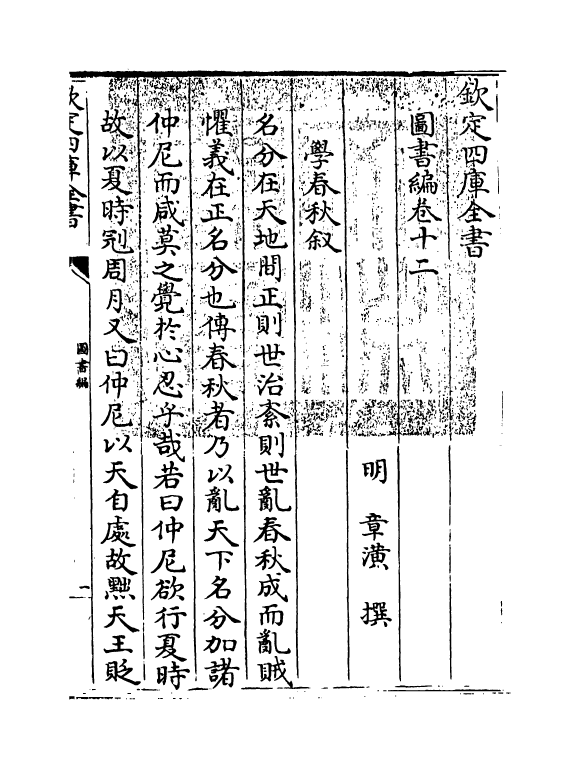 欽定四庫全書
圖書編卷十二
明 章潢 撰
學春秋叙
名分在天地間正則世治紊則世亂春秋成而亂賊
懼義在正名分也傳春秋者乃以亂天下名分加諸
仲尼而咸莫之覺於心忍乎哉若曰仲尼欲行夏時
故以夏時冠周月又曰仲尼以天自處故黜天王貶
欽定四庫全書
圖書編
一